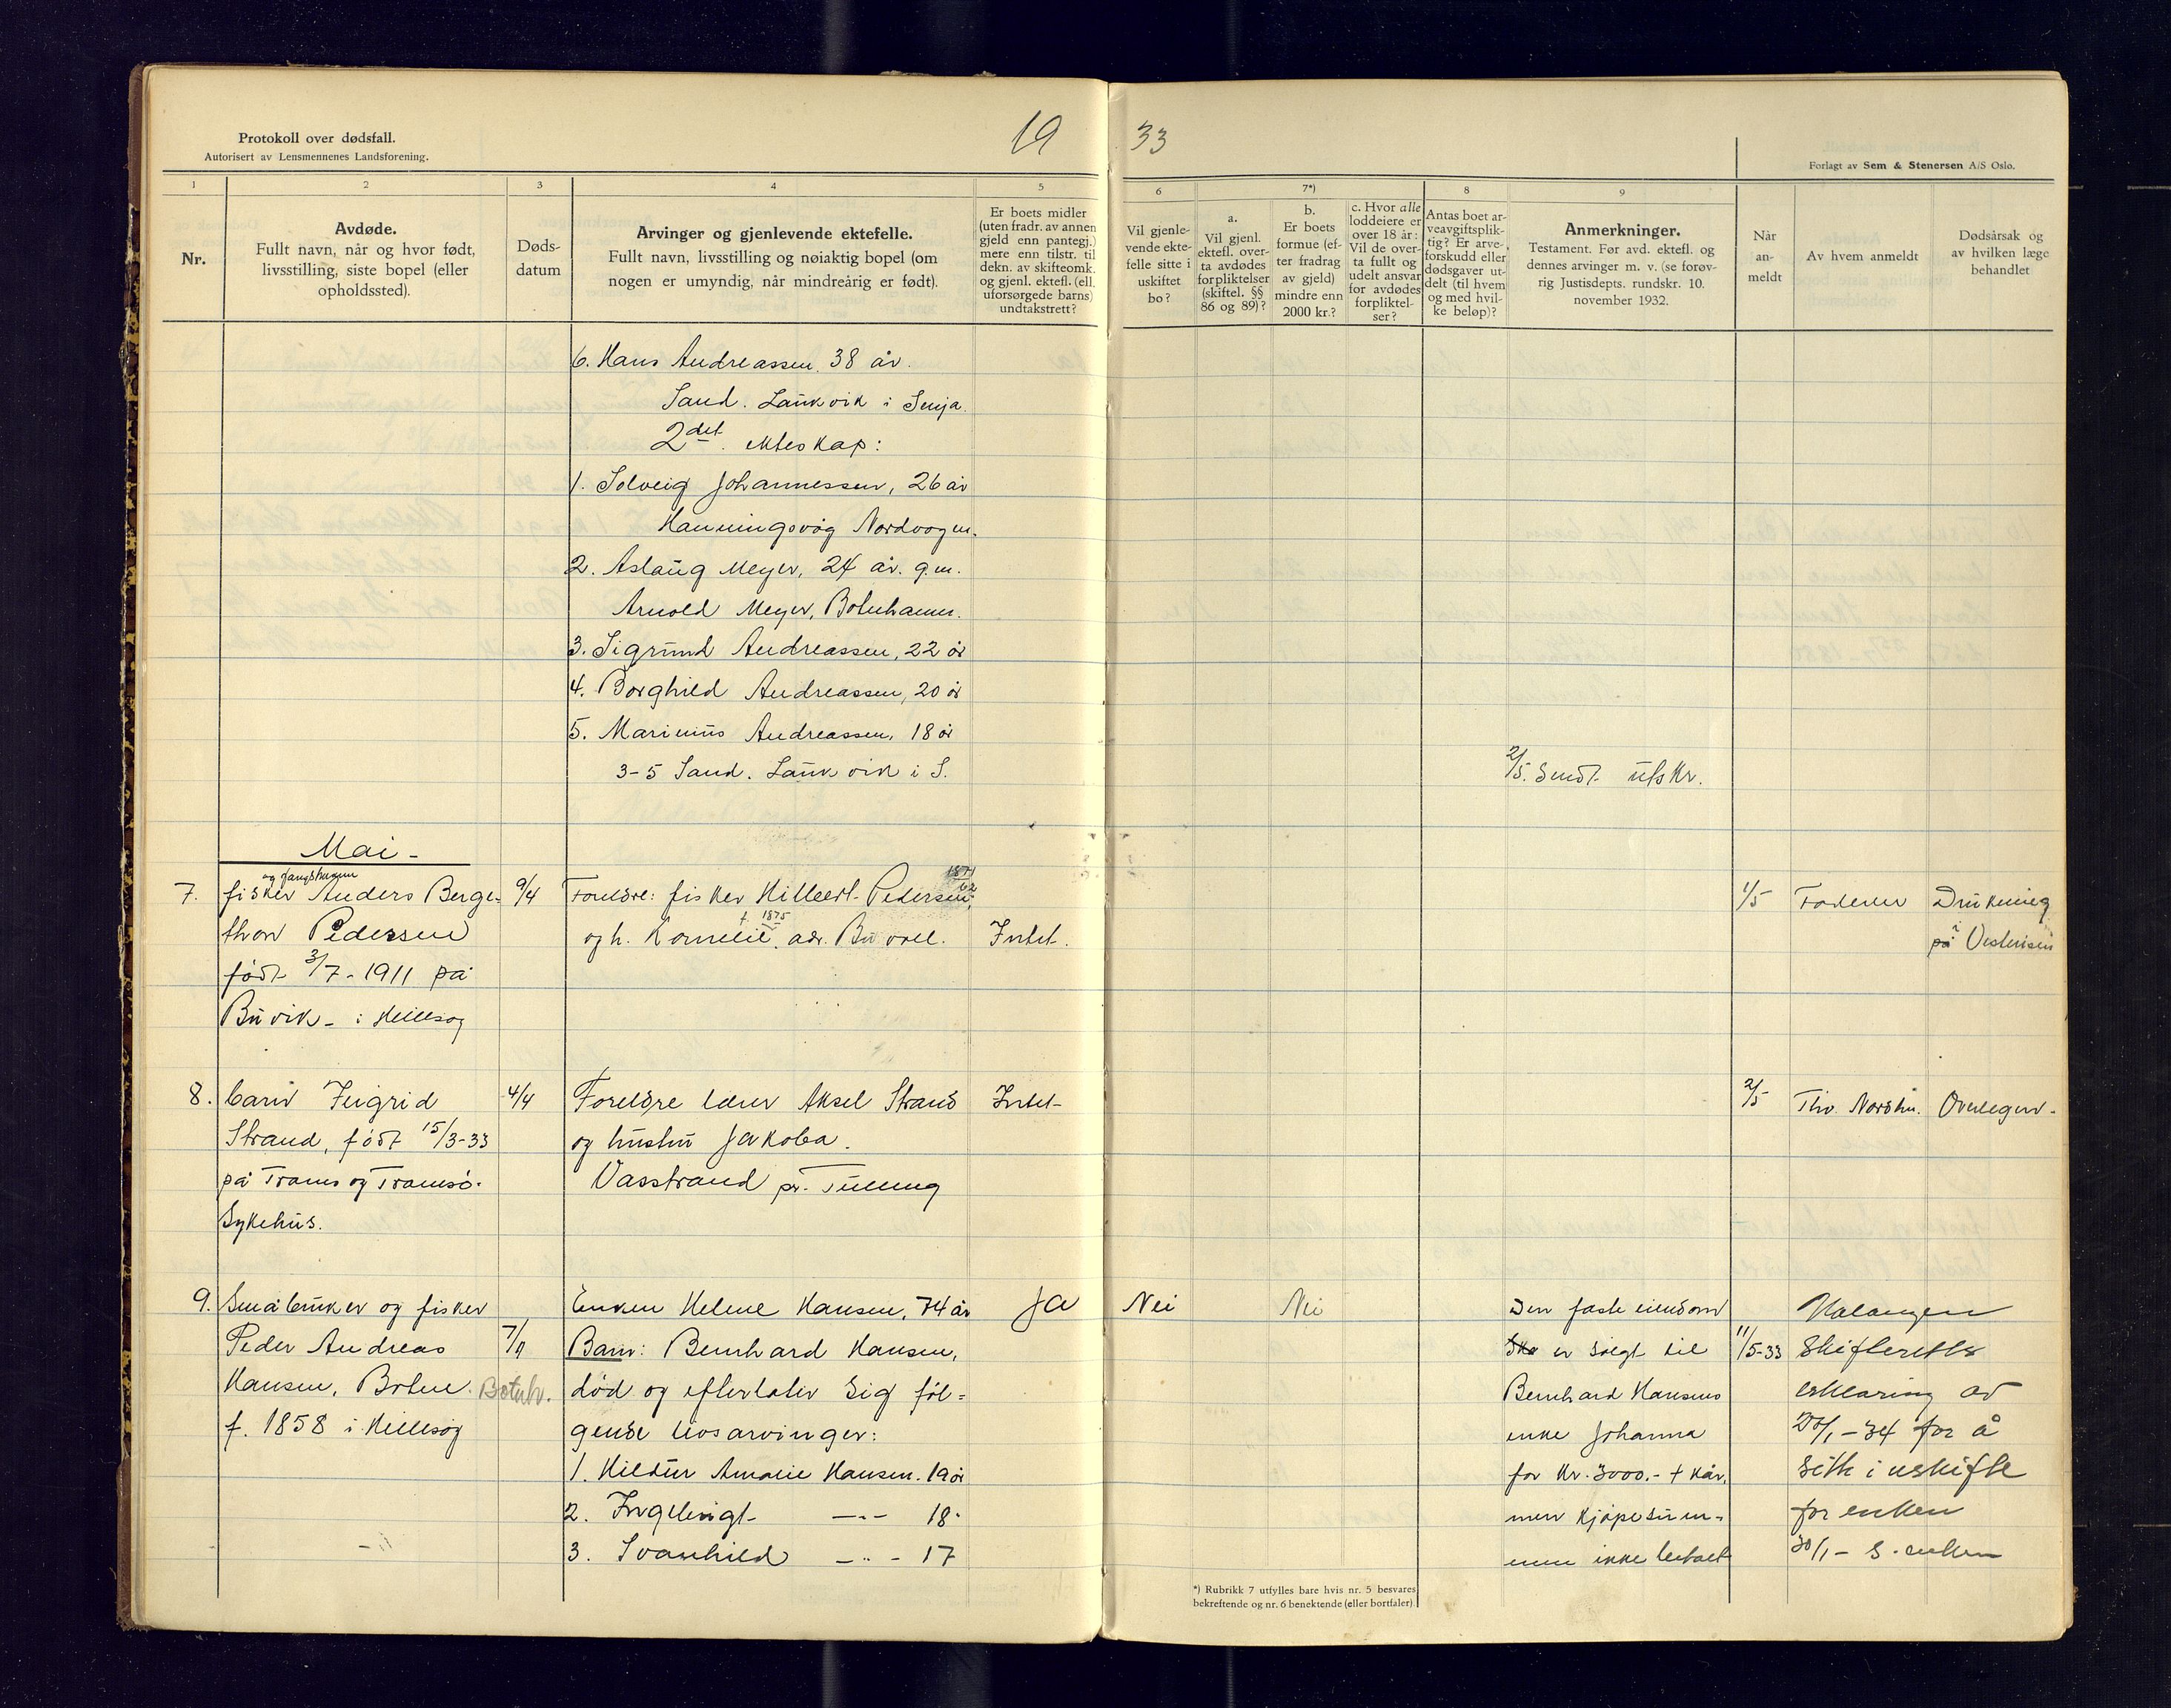 Protokoll over dødsfall.
Autorisert av Lensmennenes Landsforening.
19 33
Forlagt av Sem & Stenersen A/S Oslo.
1 2 3 4 5 6 7*) 8 9
Nr.
Avdøde.
Fullt navn, når og hvor født,
livsstilling, siste bopel (eller
opholdssted).
Døds-
datum
Arvinger og gjenlevende ektefelle.
Fullt navn, livsstilling og nøiaktig bopel (om
nogen er umyndig, når mindreårig er født).
Er boets midler
(uten fradr. av annen
gjeld enn pantegj.)
mere enn tilstr. til
dekn. av skifteomk.
og gjenl. ektefl. (ell.
uforsørgede barns)
undtakstrett?
Vil gjenle-
vende ekte-
felle sitte i
uskiftet
bo?
a.
Vil gjenl.
ektefl. over-
ta avdødes
forpliktelser
(skiftel. §§
86 og 89)?
b.
Er boets
formue (ef-
ter fradrag
av gjeld)
mindre enn
2000 kr.?
c. Hvor alle
loddeiere er
over 18 år:
Vil de over-
ta fullt og
udelt ansvar
for avdødes
forpliktel-
ser?
Antas boet ar-
veavgiftsplik-
tig? Er arve-
forskudd eller
dødsgaver ut-
delt (til hvem
og med hvil-
ke beløp)?
Anmerkninger.
Testament. Før avd. ektefl. og
dennes arvinger m. v. (se forøv-
rig Justisdepts. rundskr. 10.
november 1932.
Når
an-
meldt
Av hvem anmeldt
Dødsårsak og
av hvilken læge
behandlet
6. Hans Andreassen, 38 år.
Sand. Laukvik i Senja.
2det. ekteskap:
1. Solveig Johannessen, 26 år
Hanningsvåg Nordvogen.
2. Aslaug Meyer, 24 år. g.m.
Arnold Meyer, Botnhamn.
3. Sigrund Andreassen, 22 år
4. Borghild Andreassen, 20 år
5. Marinius Andreassen, 18 år
3-5 Sand. Laukvik i S.
2/5. Sendt utskr.
Mai -
og fangstmann
7. fisker Anders Berge-
thon Pedersen
født 3/7-1911 på
Buvik - i Hillesøy
9/4
Foreldre: fisker Hilbert Pedersen,
f. 1875
og h. Kornelie, adr. Buvoll.
Intet.
1/5 Faderen
Drukning
på i Vesterisen
8. Carin Ingrid
Strand, født 15/3-33
på Troms og Tromsø.
Sykehus.
4/4
Foreldre lærer Aksel Strand
og hustru Jakoba.
Vasstrand pr. Tulleng
Intet-
2/5 Thv. Nordhu. Overlegen-
9. Småbruker og fisker
Peder Andreas
Hansen, Botne. Botnh.
f. 1858 i Hillesøy
Enken Helene Hansen, 74 år
Barn: Bernhard Hansen,
død og efterlater sig føl-
gende livsarvinger:
1. Hildur Amalie Hansen. 19 år
2. Ingebrigt - " - 18 -
3. Svanhild - " - 17
Ja Nei Nei
Den faste eiendom
Ska er solgt til
Bernhard Hansens
enke Johanna
for kr. 3000.- + kår,
men kjøpesum-
men ikke betalt
11/5-33
Malangen
Skifteretts
erklæring av
20/1-34 for å
sitte i uskifte
for enken
30/1- s. enken
*) Rubrikk 7 utfylles bare hvis nr. 5 besvares
bekreftende og nr. 6 benektende (eller bortfaler)